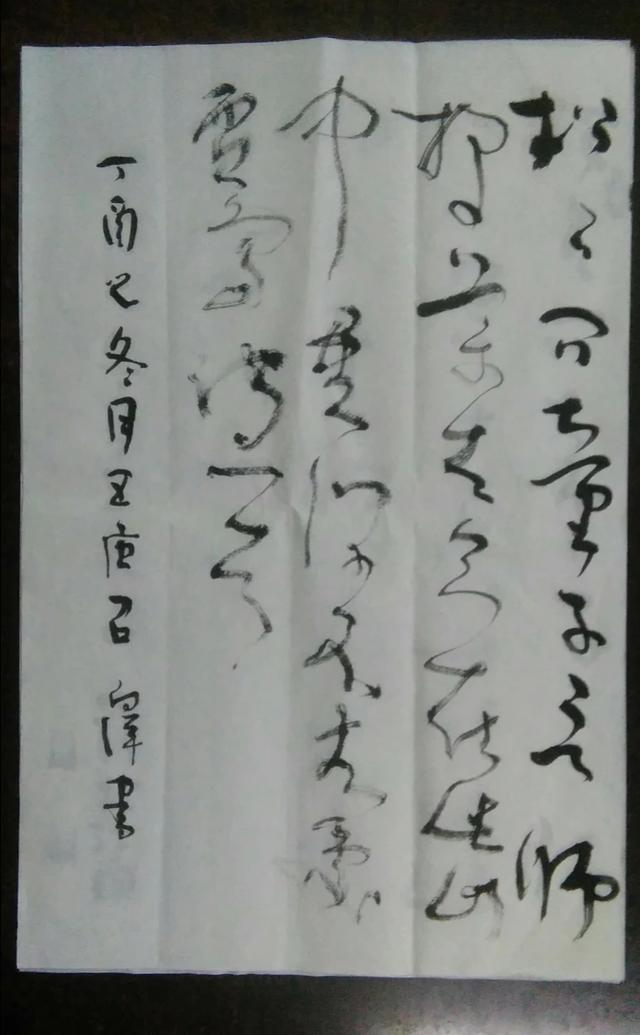 松下問童子言師
採藥去只在此山
中雲深不知處
賈島詩一首
丁酉 冬月 書